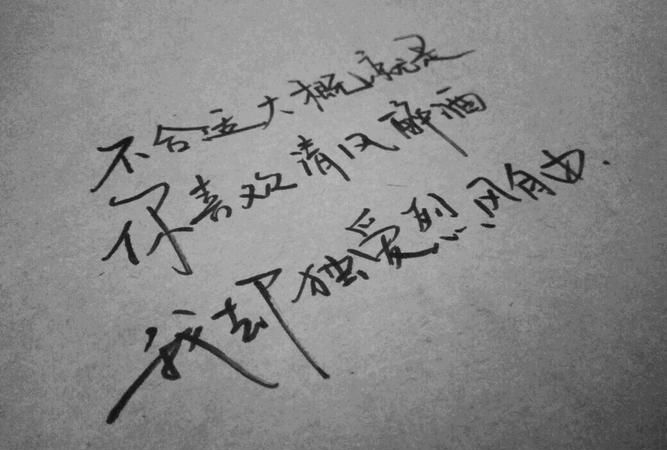 不合适大概就是
你喜欢清风醉酒
我却独爱烈风自由.